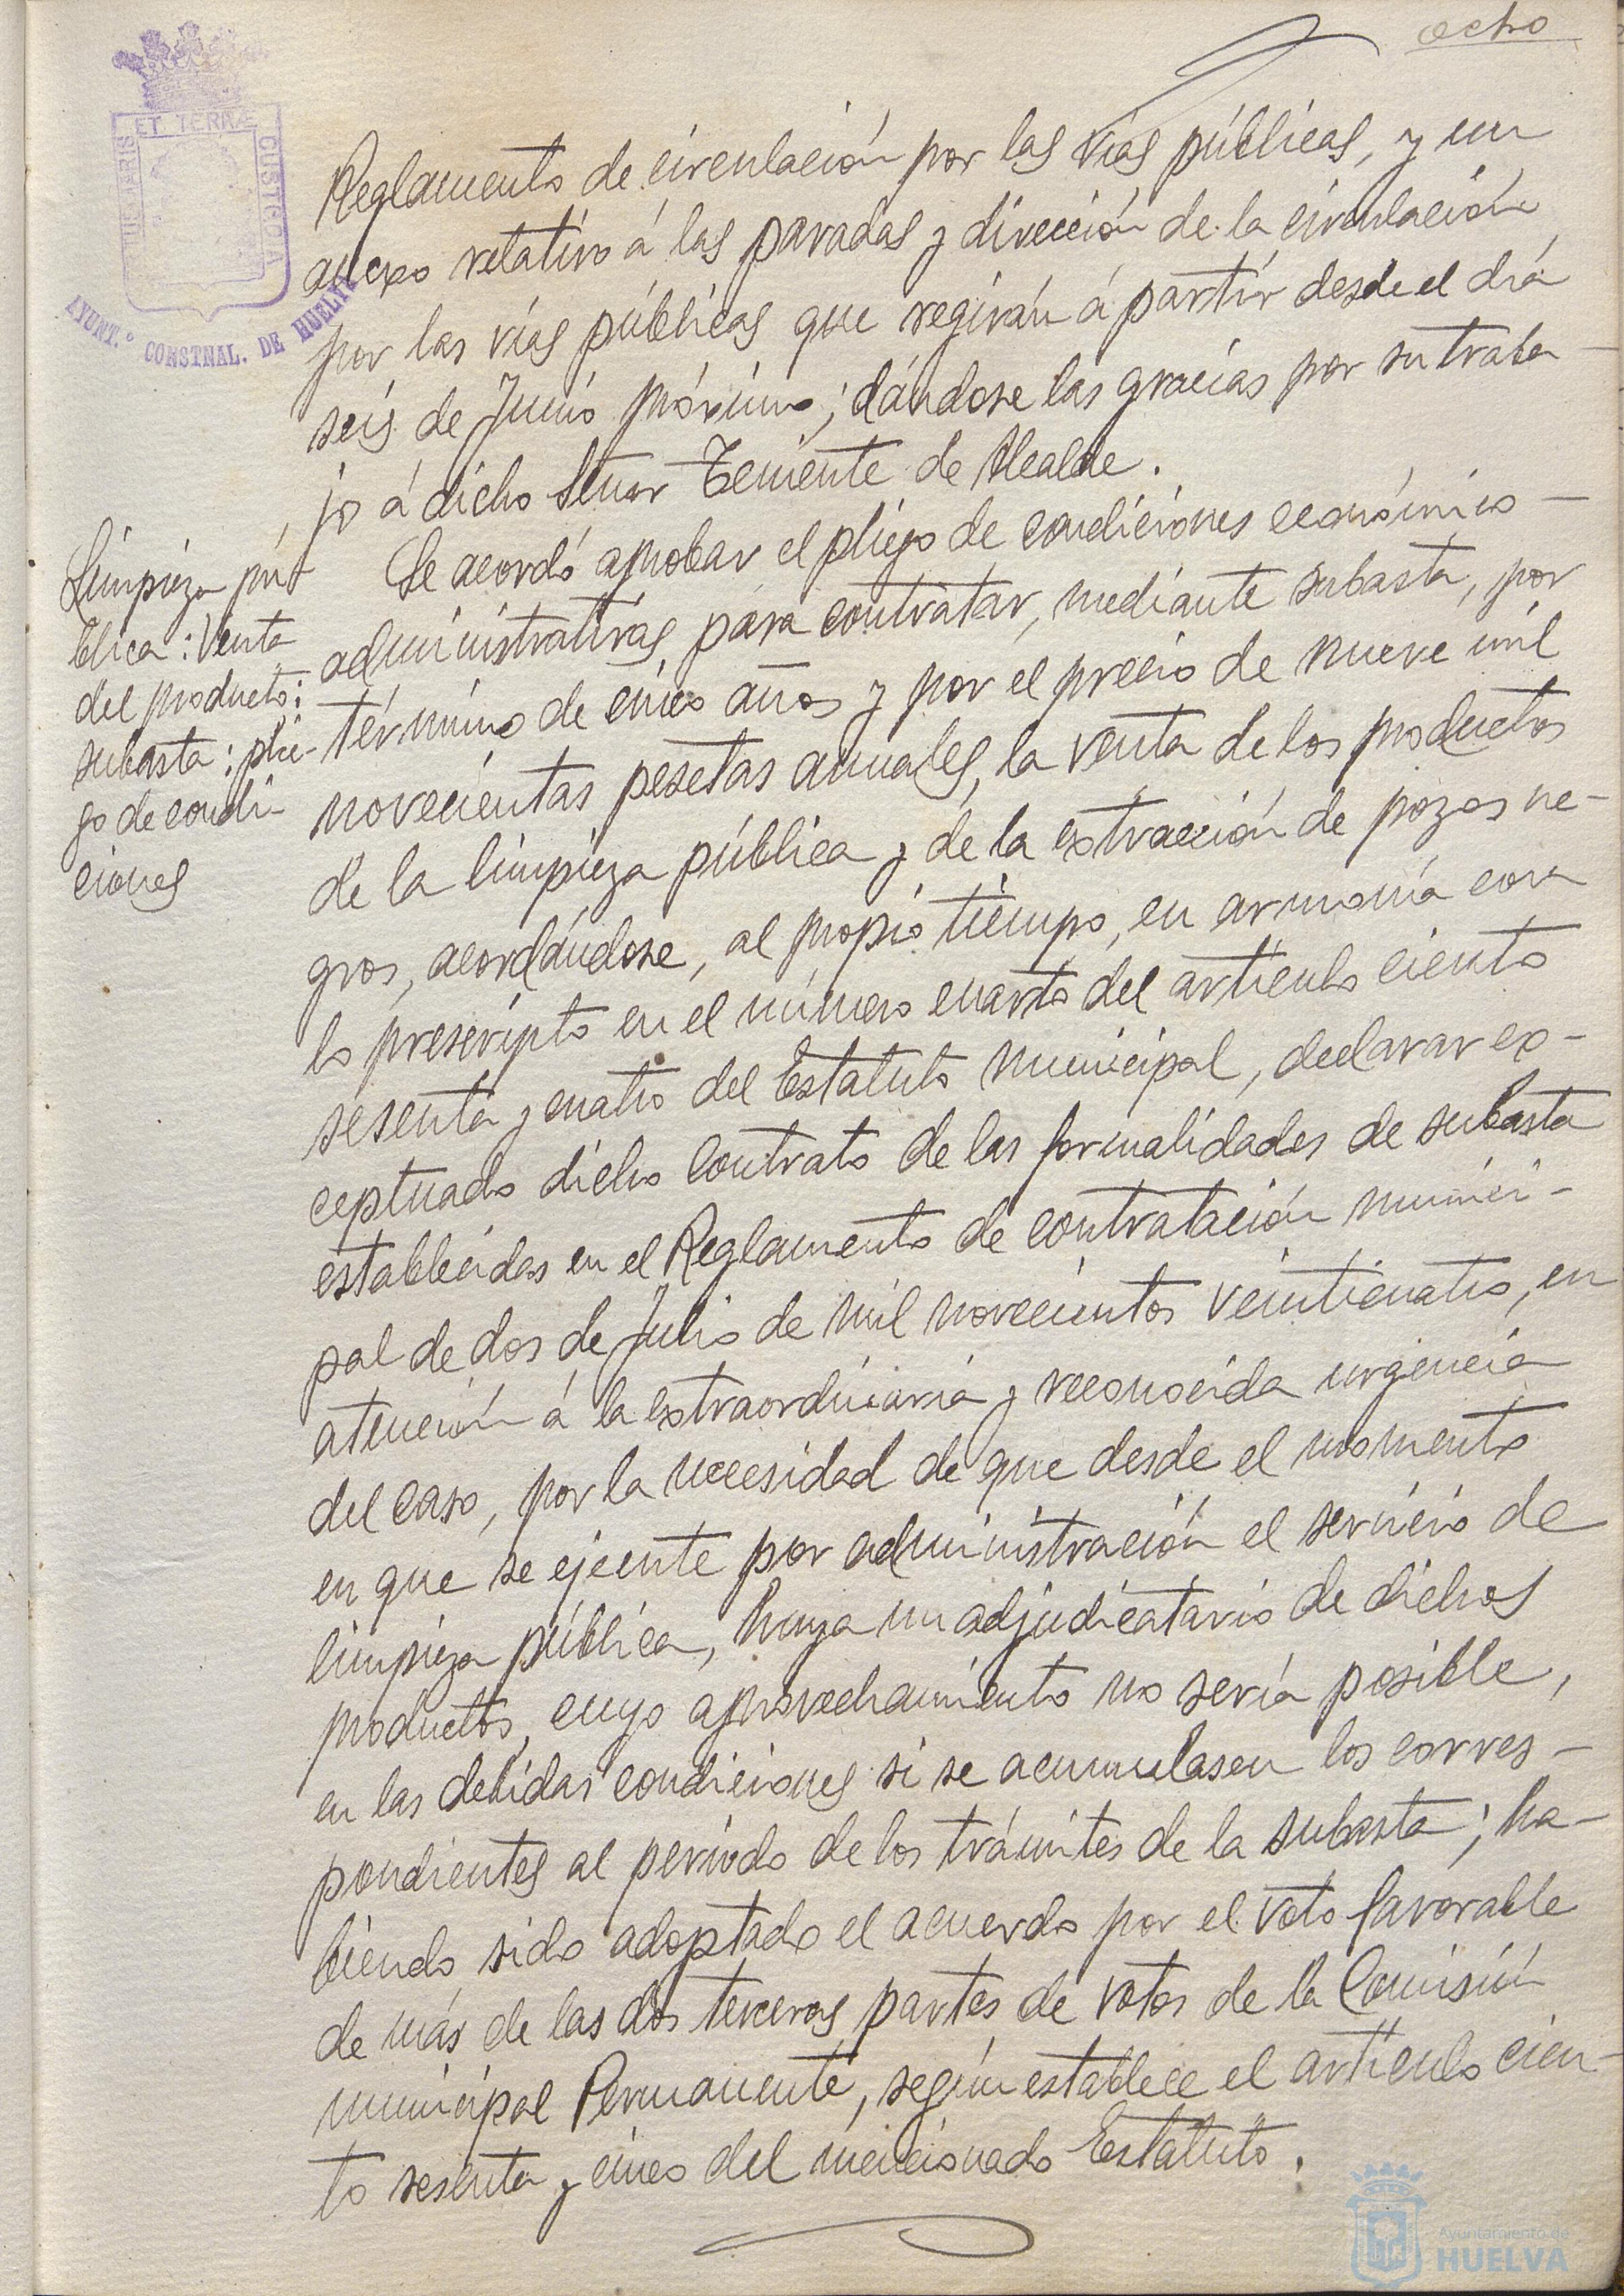 ocho
ET TERRÆ
CUSTODIA
AYUNT.º CONSTNAL. DE HUELVA
Reglamento de circulación por las vías públicas, y un
anexo relativo á las paradas y dirección de la circulación
por las vías públicas que regirán á partir desde el día
seis de Junio próximo; dándose las gracias por su traba-
jo á dicho Señor Teniente de Alcalde.
Limpieza pú-
blica: Venta
del producto:
subasta: plie-
go de condi-
ciones
Se acordó aprobar el pliego de condiciones económico-
administrativas, para contratar, mediante subasta, por
término de cinco años y por el precio de nueve mil
novecientas pesetas anuales, la venta de los productos
de la limpieza pública y de la extracción de pozos ne-
gros, acordándose, al propio tiempo, en armonía con
lo prescripto en el número cuarto del artículo ciento
sesenta y cuatro del Estatuto municipal, declarar ex-
ceptuado dicho contrato de las formalidades de subasta
establecidas en el Reglamento de contratación munici-
pal de dos de Julio de mil novecientos veinticuatro, en
atención á la extraordinaria y reconocida urgencia
del caso, por la necesidad de que desde el momento
en que se ejecute por administración el servicio de
limpieza pública, haya un adjudicatario de dichos
productos, cuyo aprovechamiento no sería posible,
en las debidas condiciones si se acumulasen los corres-
pondientes al período de los trámites de la subasta; ha-
biendo sido adoptado el acuerdo por el voto favorable
de más de las dos terceras partes de votos de la Comisión
municipal Permanente, según establece el artículo cien-
to sesenta y cinco del mencionado Estatuto.
Ayuntamiento de
HUELVA